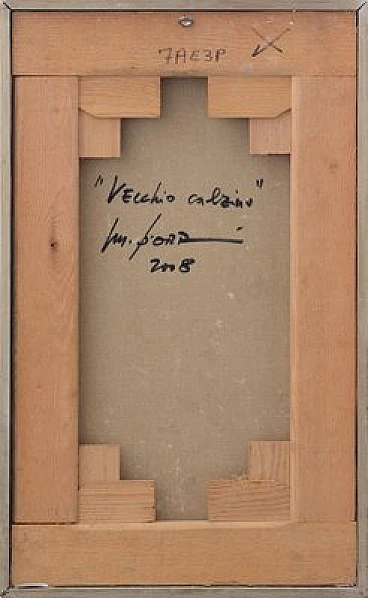 7AE3P X
"Vecchio calzino"
2008